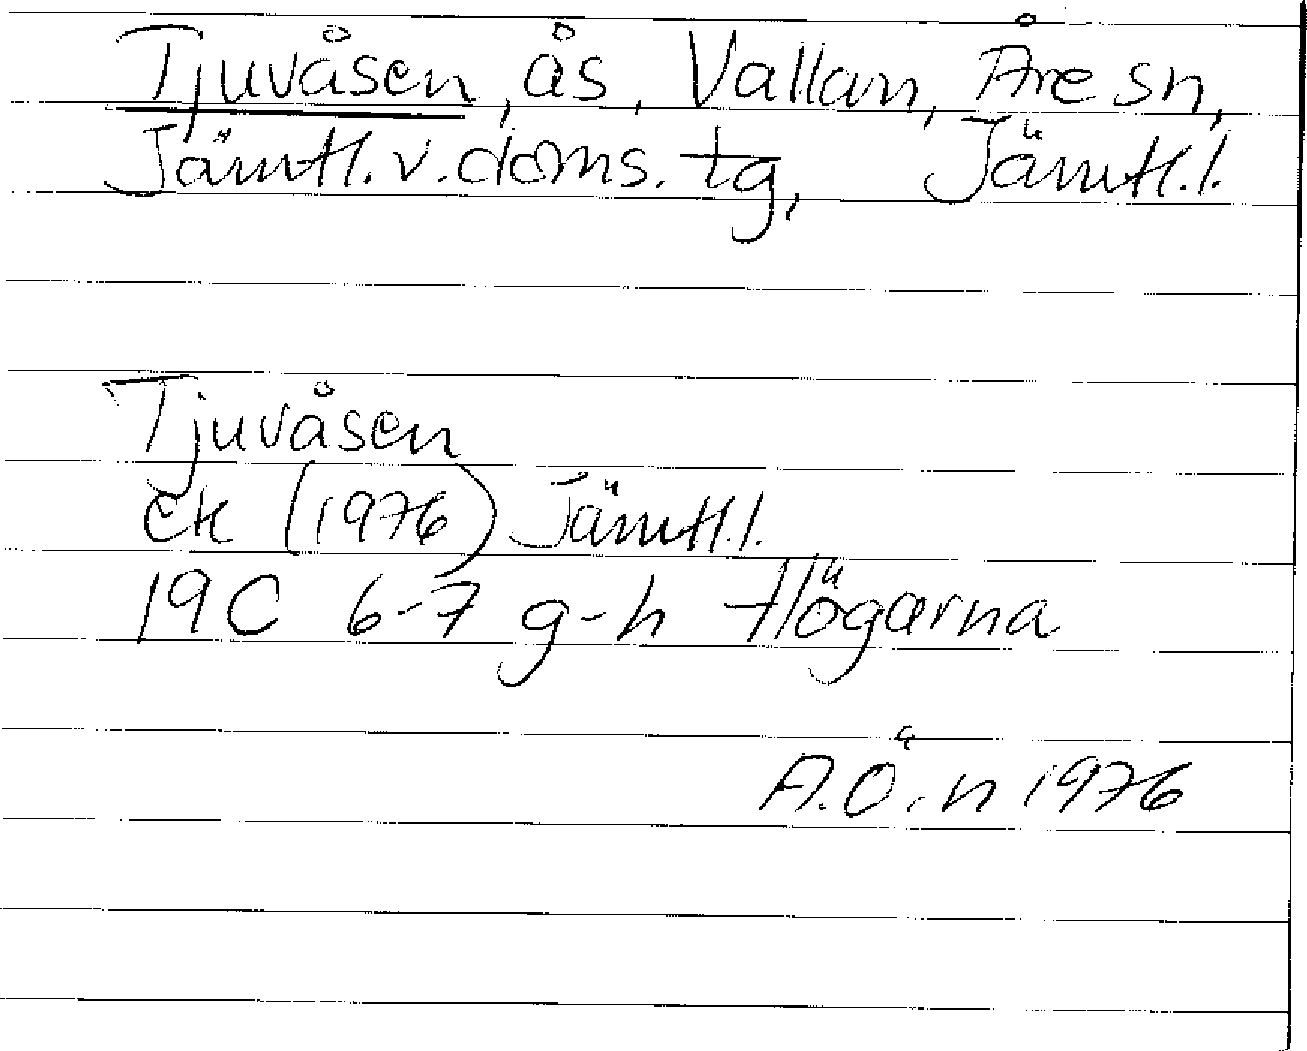 Tjuvåsen, ås, Vallan, Åre sn,
Jämtl.v.doms.tg, Jämtl.l.
Tjuvåsen
ek (1976) Jämtl.l.
19C 6-7 g-h Högarna
A.Ö.n 1976